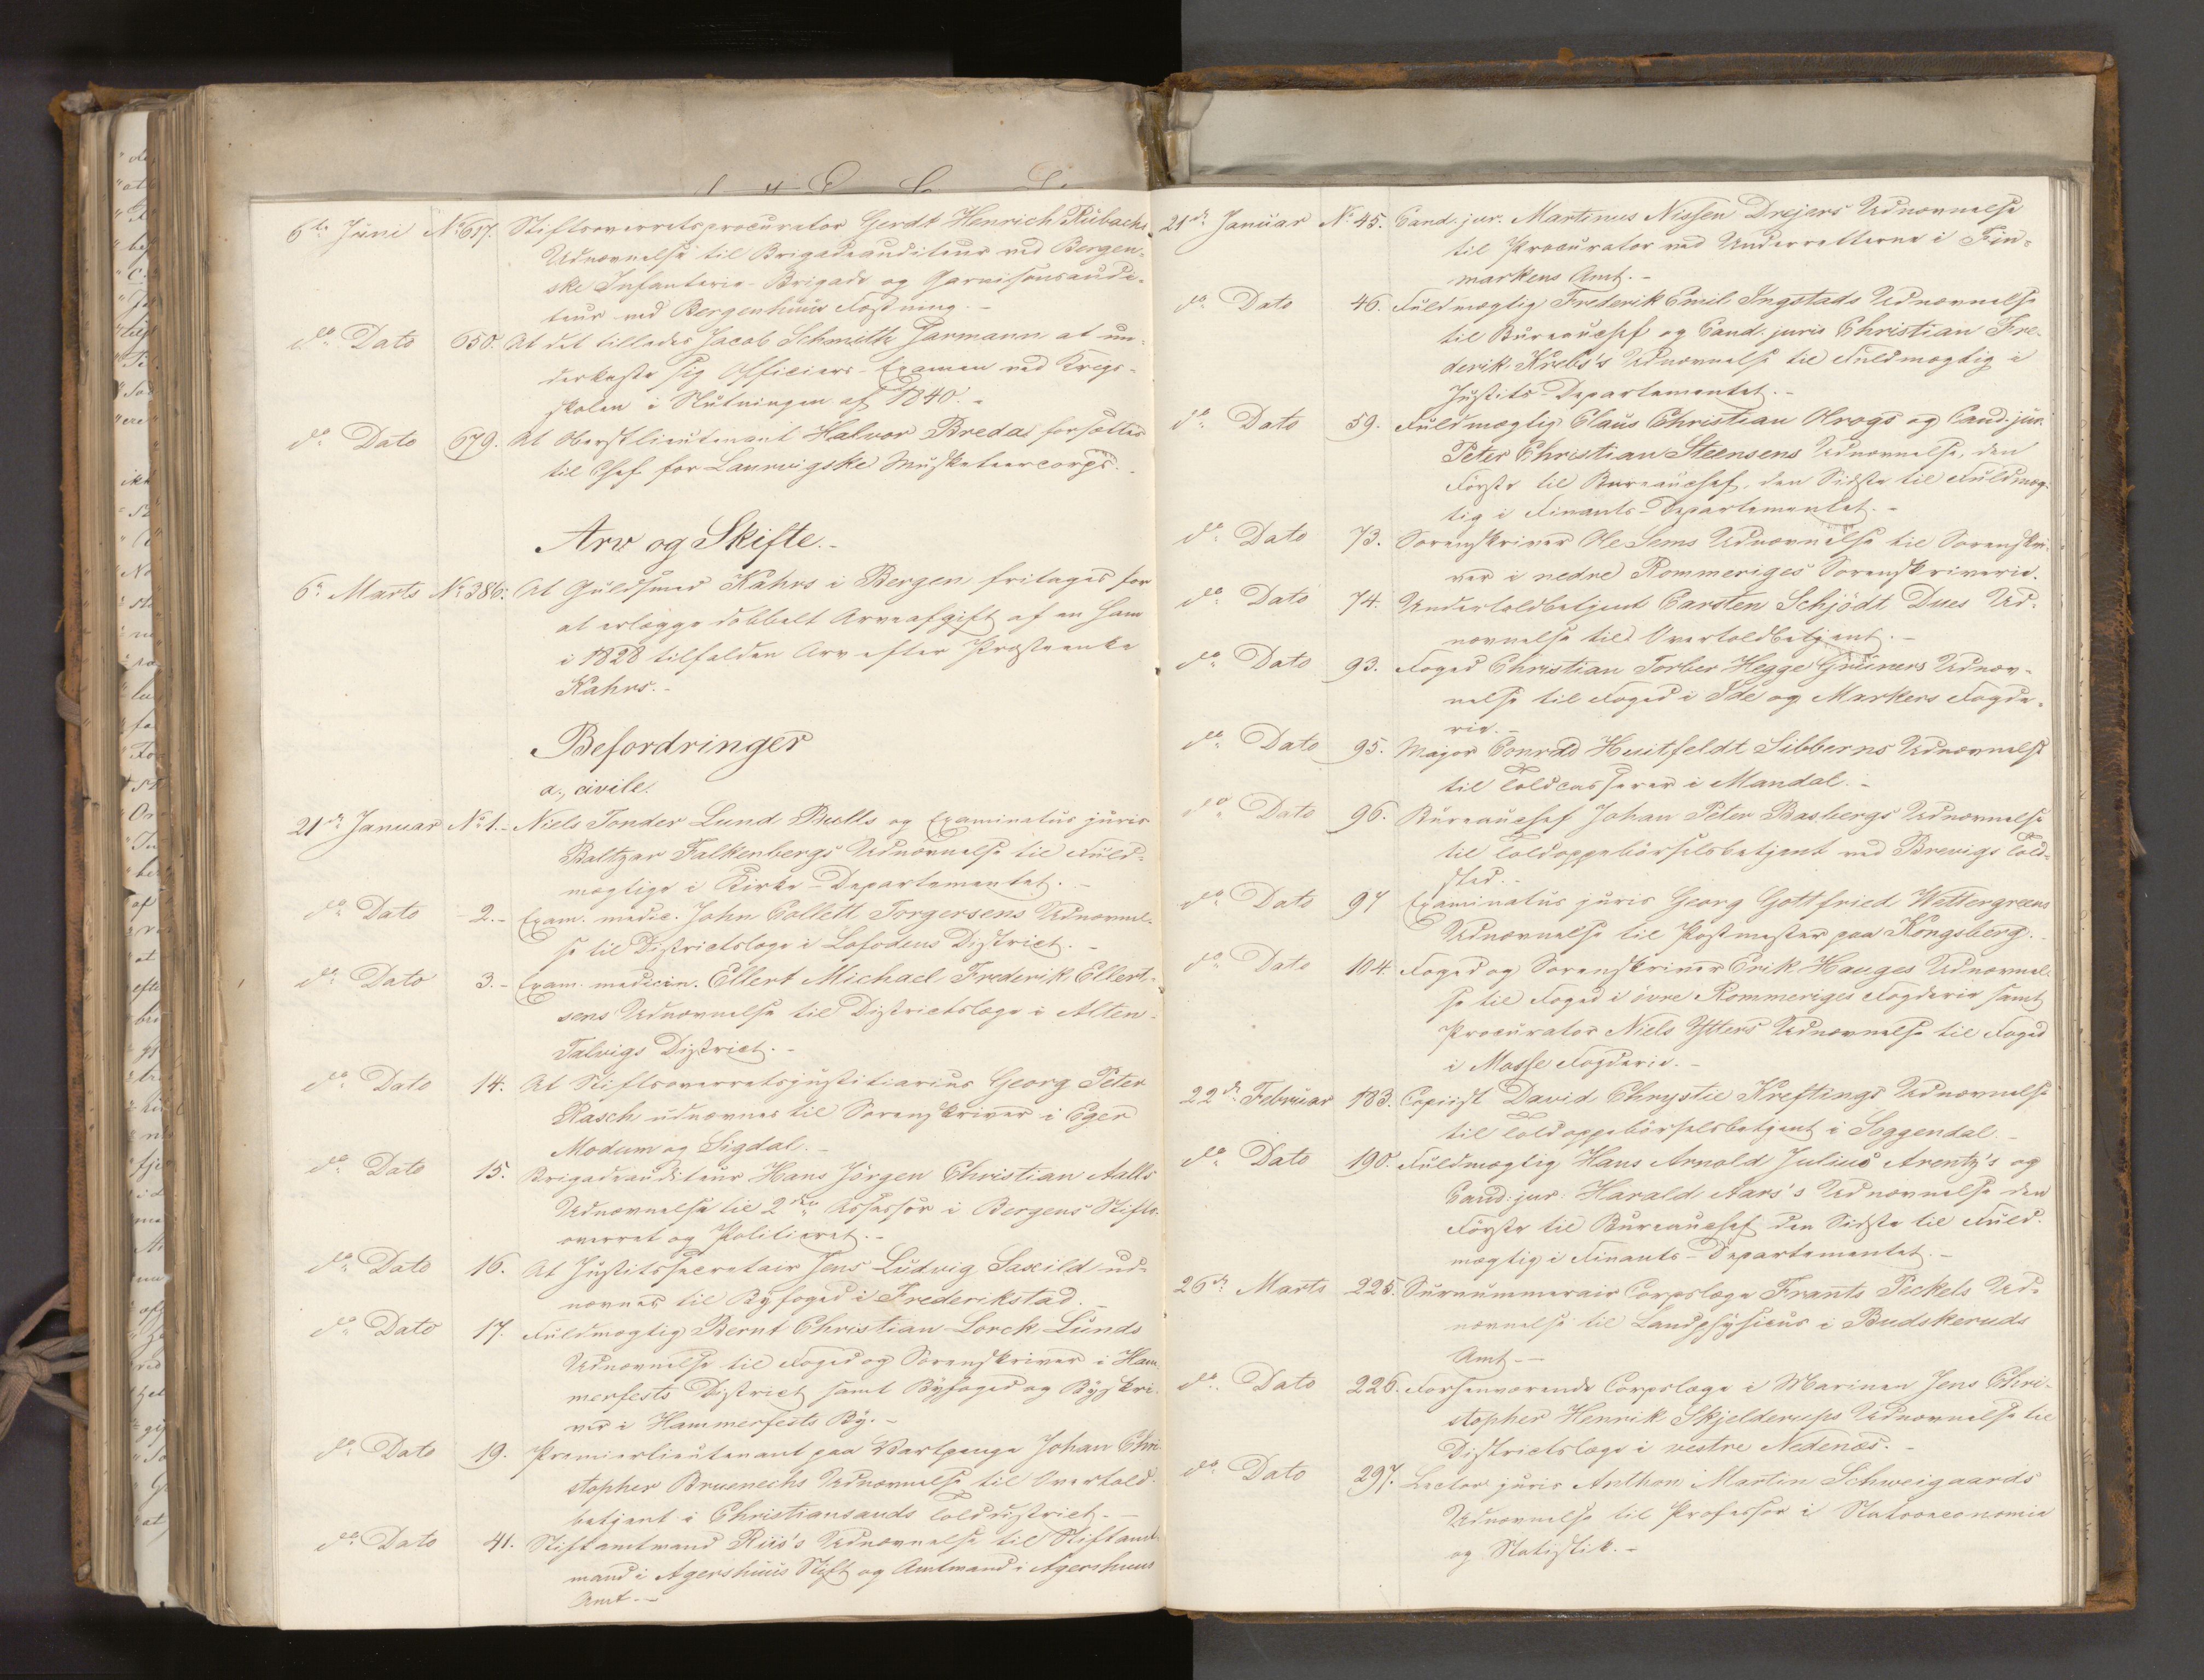 6te Juni No 617. Stiftsoverretsprocurator Gerdt Henrich Rübachs
Udnævnelse til Brigadeauditeur ved Bergen-
ske Infanterie-Brigade og Garnisonsaudi-
teur ved Bergenhuus Fæstning.-
do Dato 650. At det tillades Jacob Schmith Jarmann at un-
derkaste sig Officiers-Examen ved Krigs-
skolen i Slutningen af 1840.-
do Dato 679. At Oberstlieutenant Halvor Bredas forsættes
til Chef for Laurvigske Musketeercorps.-
Arv og Skifte.-
6te Marts No 386. At Guldsmed Kahrs i Bergen fritages for
at erlægge dobbelt Arveafgift af en ham
i 1828 tilfalden Arv efter Præsteenke
Kahrs.-
Befordringer
a, civile.
21de Januar No 1.- Niels Tonder Lund Bulls og Examinatus juris
Baltzar Falkenbergs Udnævnelse til Fuld-
mægtige i Kirke-Departementet.-
do Dato - 2.- Exam. medic. John Collett Torgersens Udnævnel-
se til Districtslæge i Lofodens District.-
do Dato 3.- Exam. medicin. Ellert Michael Frederik Ellert-
sens Udnævnelse til Districtslæge i Alten-
Talvigs District.-
do Dato 14. At Stiftsoverretsjustitiarius Georg Peter
Rasch udnævnes til Sorenskriver i Eger
Modum og Sigdal.-
do Dato 15. Brigadeauditeur Hans Jörgen Christian Aalls
Udnævnelse til 2den Assessor i Bergens Stifts-
overret og Politieret.-
do Dato 16. At Justitssecretair Jens Ludvig Saxild ud-
nævnes til Byfoged i Frederikstad.-
do Dato 17. Fuldmægtig Bernt Christian Lorck Lunds
Udnævnelse til Foged og Sorenskriver i Ham-
merfests District samt Byfoged og Byskri-
ver i Hammerfests By.-
do Dato 19. Premierlieutenant paa Vartpenge Johan Chri-
stopher Bruenechs Udnævnelse til Overtold-
betjent i Christiansands Tolddistrict.-
do Dato 41. Stiftamtmand Riis's Udnævnelse til Stiftamt-
mand i Agershuus Stift og Amtmand i Agershuus
Amt.-
21de Januar No 45. Cand. jur. Martinus Nissen Drejers Udnævnelse
til Procurator ved Underretterne i Fin-
markens Amt.-
do Dato 46. Fuldmægtig Frederik Emil Ingstads Udnævnelse
til Bureauchef og Cand. juris Christian Fre-
derik Krebs's Udnævnelse til Fuldmægtig i
Justits-Departementet.-
do Dato 59. Fuldmægtig Claus Christian Krogs og Cand. jur.
Peter Christian Steensens Udnævnelse, den
Förste til Bureauchef, den Sidste til Fuldmæg-
tig i Finants-Departementet.-
do Dato 73. Sorenskriver Ole Sems Udnævnelse til Sorenskri-
ver i nedre Rommeriges Sorenskriverie.
do Dato 74. Undertoldbetjent Carsten Schjödt Dues Ud-
nævnelse til Overtoldbetjent.-
do Dato 93. Foged Christian Torber Hegge Grüners Udnæv-
nelse til Foged i Ide og Markers Fogde-
rie.-
do Dato 95. Major Conrad Huitfeldt Sibberns Udnævnelse
til Toldcasserer i Mandal.-
do Dato 96. Bureauchef Johan Peter Basbergs Udnævnelse
til Toldoppebörselsbetjent ved Brevigs Told-
sted.-
do Dato 97 Examinatus juris Georg Gottfried Wettergreens
Udnævnelse til Postmester paa Kongsberg.-
do Dato 104. Foged og Sorenskriver Erik Hauges Udnævnel-
se til Foged i övre Rommeriges Fogderie samt
Procurator Niels Ytters Udnævnelse til Foged
i Mosse Fogderie.-
22de Februar 183. Copiist David Chrystie Kreftings Udnævnelse
til Toldoppebörselsbetjent i Soggendal.-
do Dato 190. Fuldmægtig Hans Arnold Julius Arentz's og
Cand: jur: Harald Aars's Udnævnelse den
Förste til Bureauchef den Sidste til Fuld-
mægtig i Finants-Departementet.-
26de Marts 225. Surnummerair Corpslæge Frants Peckels Ud-
nævnelse til Landphysicus i Budskeruds
Amt.-
do Dato 226. Forhenværende Corpslæge i Marinen Jens Chri-
stopher Henrik Skjelderups Udnævnelse til
Districtslæge i vestre Nedenæs.-
do Dato 297. Lector juris Anthon Martin Schweigaards
Udnævnelse til Professor i Statsoeconomie
og Statistik.-